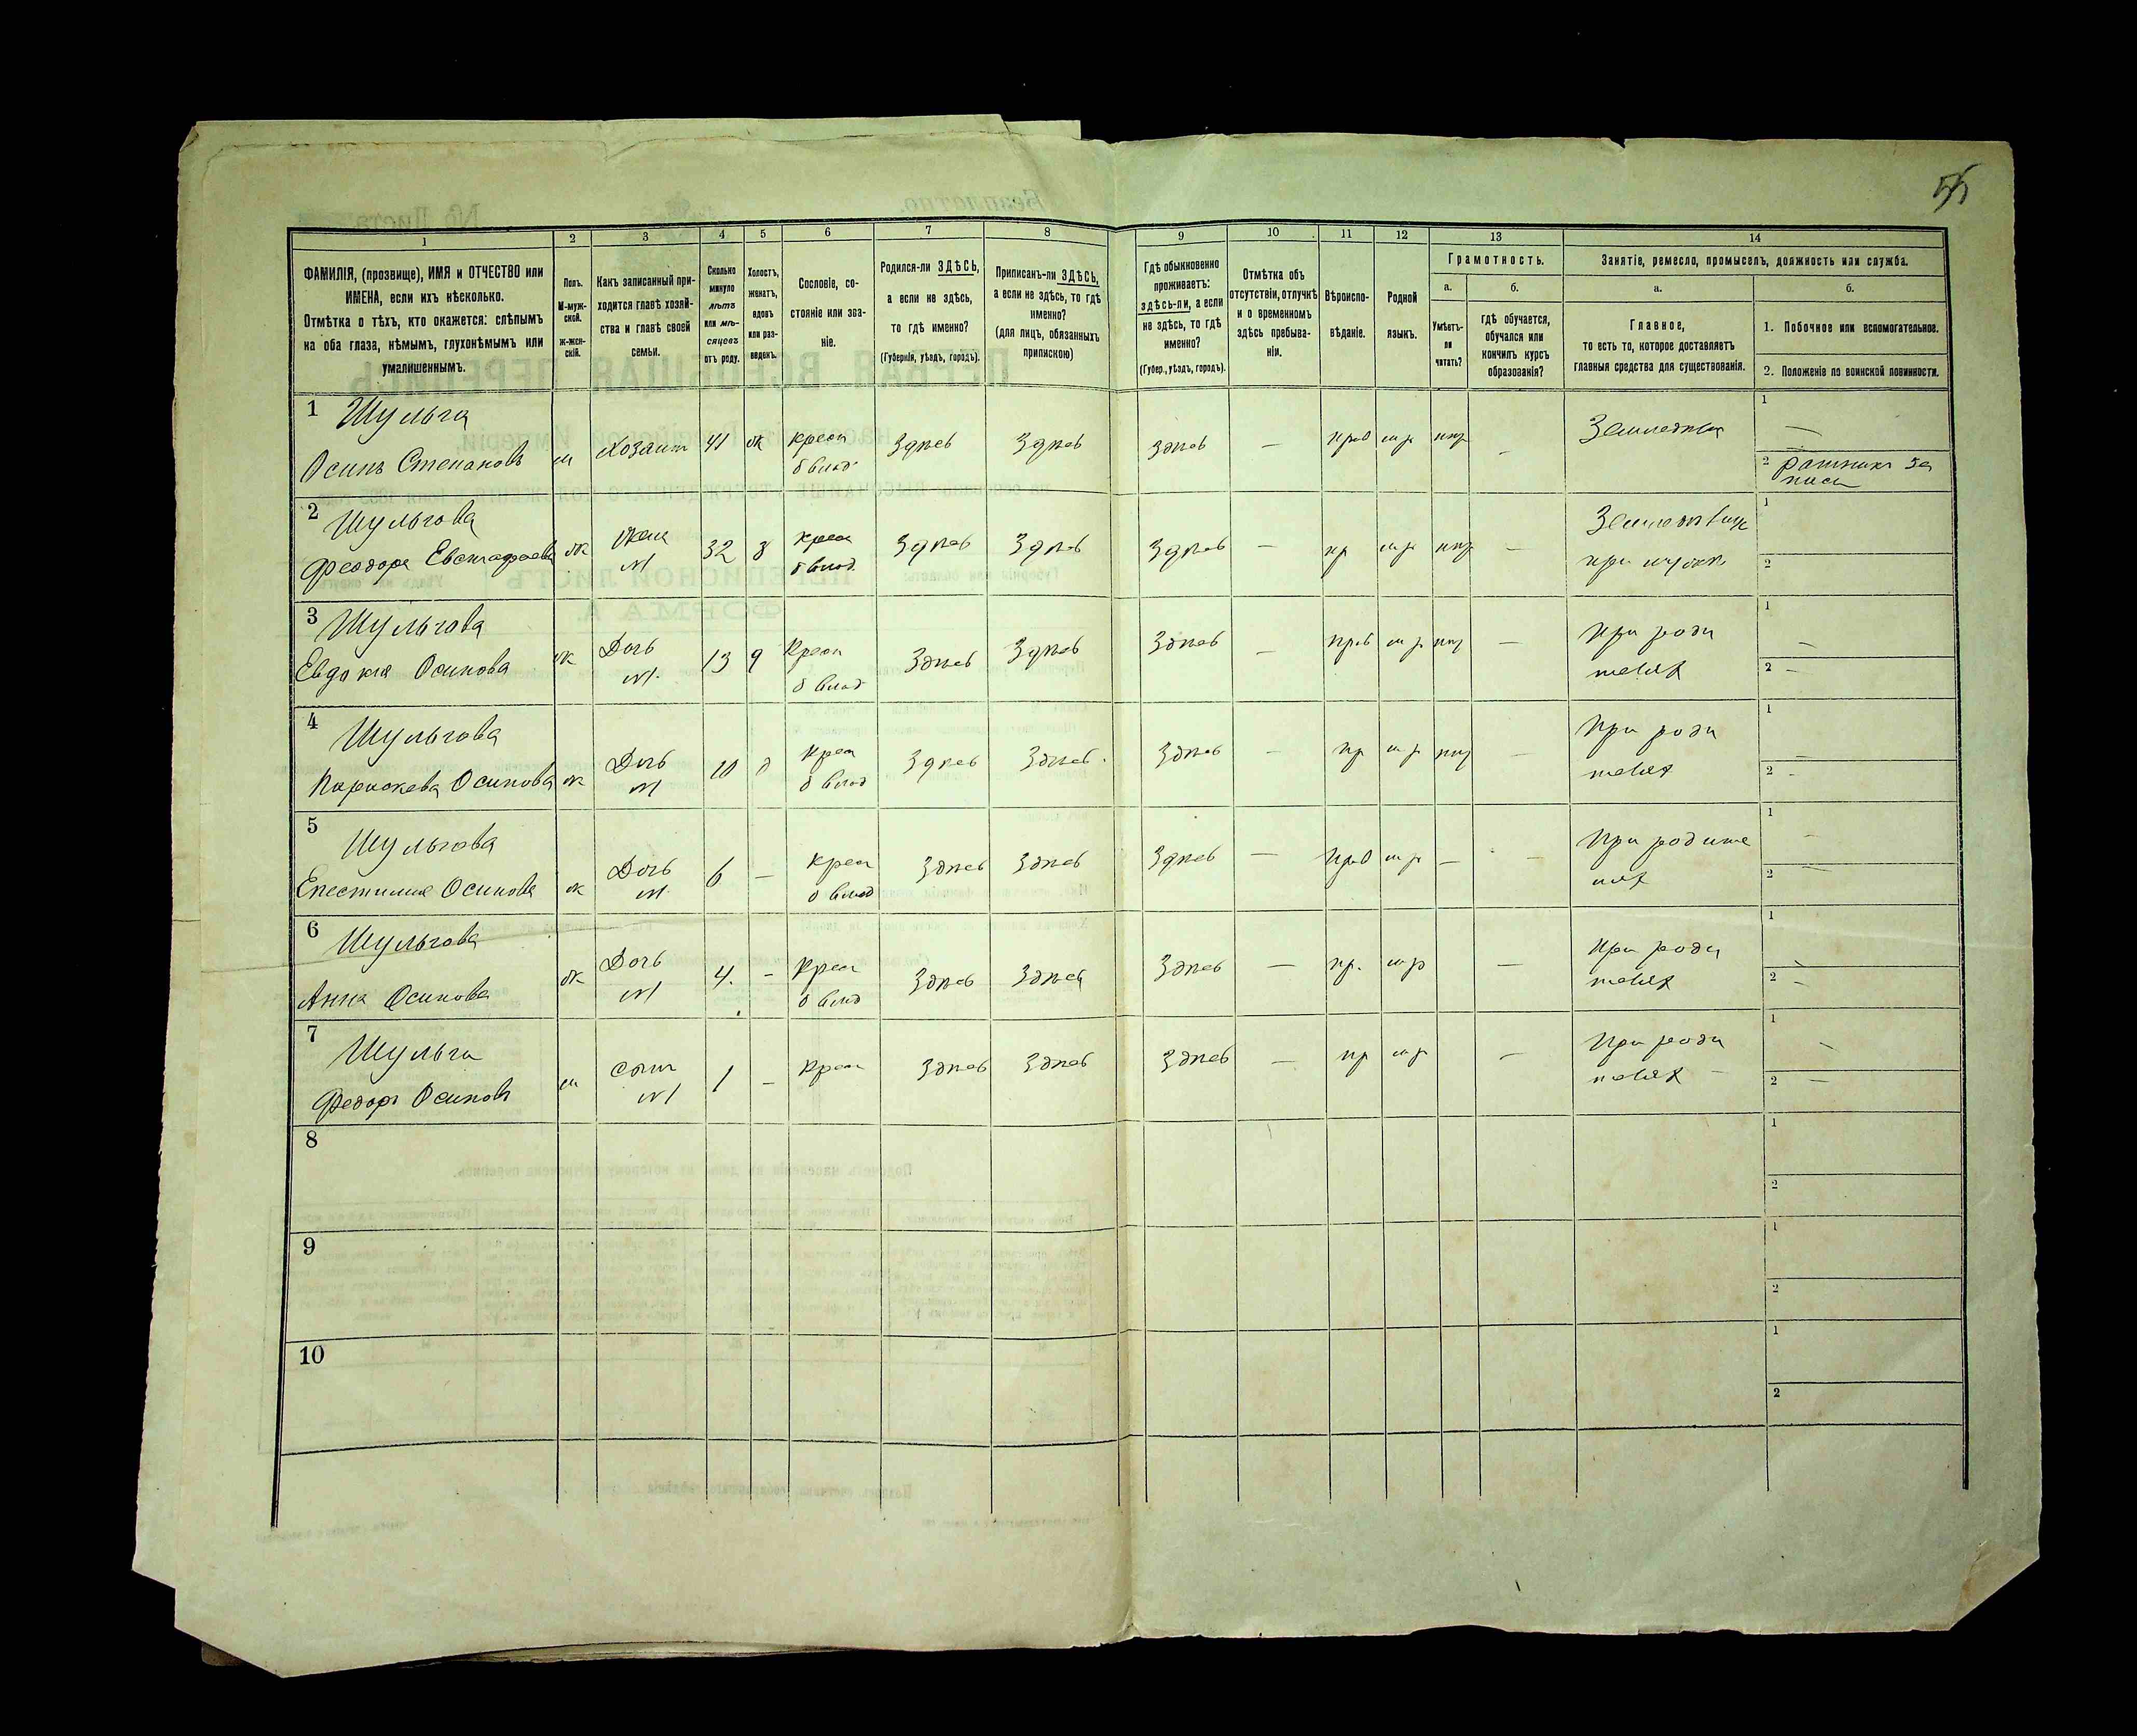 55
1 2 3 4 5 6 7 8 9 10 11 12 13 14
ФАМИЛІЯ, (прозвище), ИМЯ и ОТЧЕСТВО или ИМЕНА, если ихъ нѣсколько.
Отмѣтка о тѣхъ, кто окажется: слѣпымъ на оба глаза, нѣмымъ, глухонѣмымъ или умалишеннымъ.
Полъ. М-мужской. ж-женскій.
Какъ записанный приходится главѣ хозяйства и главѣ своей семьи.
Сколько минуло лѣтъ или мѣсяцевъ отъ роду.
Холостъ, женатъ, вдовъ или разведенъ.
Сословіе, состояніе или званіе.
Родился-ли ЗДѢСЬ, а если не здѣсь, то гдѣ именно?
(Губернія, уѣздъ, городъ).
Приписанъ-ли ЗДѢСЬ, а если не здѣсь, то гдѣ именно?
(для лицъ, обязанныхъ припискою)
Гдѣ обыкновенно проживаетъ: здѣсь-ли, а если не здѣсь, то гдѣ именно?
(Губер., уѣздъ, городъ).
Отмѣтка объ отсутствіи, отлучкѣ и о временномъ здѣсь пребываніи.
Вѣроисповѣданіе.
Родной языкъ.
Грамотность.
а. б.
Умѣетъ-ли читать?
гдѣ обучается, обучался или кончилъ курсъ образованія?
Занятіе, ремесло, промыселъ, должность или служба.
а. б.
Главное, то есть то, которое доставляетъ главныя средства для существованія.
1. Побочное или вспомогательное.
2. Положеніе по воинской повинности.
1 Шульга
Осипъ Степановъ м Хозяин 41 ж крест б влад Здѣсь Здѣсь Здѣсь — прав мр — 1 —
2
2 Шульгова
Феодора Евстафиева ж Жена м 32 з крест б влад Здѣсь Здѣсь Здѣсь — пр мр — при мужѣ 1
2
3 Шульгова
Евдокия Осипова ж Дочь м 13 д Крест б влад Здѣсь Здѣсь Здѣсь — прав мр — При роди телях 1 —
2 —
4 Шульгова
Параскева Осипова ж Дочь м 10 д Крест б влад Здѣсь Здѣсь Здѣсь — пр мр — При роди телях 1 —
2 -
5 Шульгова
Осипова ж Дочь м 6 — крест б влад Здѣсь Здѣсь Здѣсь — прав мр — - При родите лях 1 -
2 —
6 Шульгова
Анна Осипова ж Дочь м 4. - Крест б влад Здѣсь Здѣсь Здѣсь — пр. мр — При роди телях 1 -
2 -
7 Шульга
Федоръ Осиповъ м сын м 1 - Крест Здѣсь Здѣсь Здѣсь — пр мр — При роди телях 1 -
2 —
8 1
2
9 1
2
10 1
2